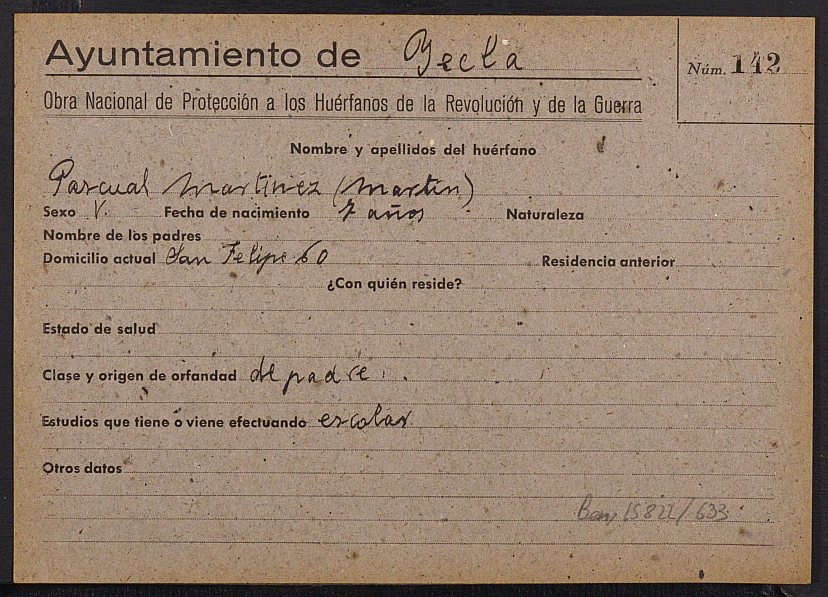 Ayuntamiento de Yecla
Núm. 142
Obra Nacional de Protección a los Huérfanos de la Revolución y de la Guerra
Nombre y apellidos del huérfano
Pascual Martinez (Martin)
Sexo V. Fecha de nacimiento 7 años Naturaleza
Nombre de los padres
Domicilio actual San Felipe 60 Residencia anterior
¿Con quién reside?
Estado de salud
Clase y origen de orfandad de padre.
Estudios que tiene o viene efectuando escolar
Otros datos
Ben 15822/633